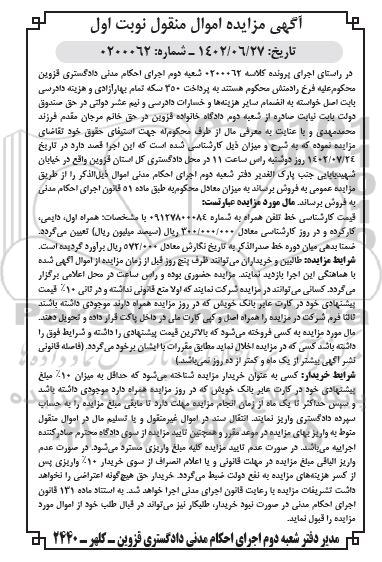 آگهی مزایده اموال منقول نوبت اول
تاریخ: ۱۴۰۲/۰۶/۲۷ ـ شماره: ۰۲۰۰۰۶۲
در راستای اجرای پرونده کلاسه ۰۲۰۰۰۶۲ شعبه دوم اجرای احکام مدنی دادگستری قزوین
محکوم‌علیه فرخ رادمنش محکوم هستند به پرداخت ۳۵۰ سکه تمام بهارآزادی و هزینه دادرسی
بابت اصل خواسته به انضمام سایر هزینه‌ها و خسارات دادرسی و نیم عشر دولتی در حق صندوق
دولت بابت نیابت صادره از شعبه دوم دادگاه خانواده قزوین در حق خانم مرجان مقدم فرزند
محمدمهدی و با عنایت به معرفی مال از طرف محکوم‌له جهت استیفای حقوق خود تقاضای
مزایده نموده که به شرح و میزان ذیل کارشناسی شده است که این اجرا قصد دارد در تاریخ
۱۴۰۲/۰۷/۲۴ روز دوشنبه راس ساعت ۱۱ در محل دادگستری کل استان قزوین واقع در خیابان
شهیدبابایی جنب پارک الغدیر دفتر شعبه دوم اجرای احکام مدنی اموال ذیل‌الذکر را از طریق
مزایده عمومی به فروش برساند به میزان معادل محکوم‌به طبق ماده ۵۱ قانون اجرای احکام مدنی
به فروش برساند. مال مورد مزایده عبارتست:
قیمت کارشناسی خط تلفن همراه به شماره ۰۹۱۲۷۸۰۰۰۸۴ با مشخصات: همراه اول، دایمی،
کارکرده و در روز کارشناسی معادل ۳۰۰/۰۰۰/۰۰۰ ریال (سیصد میلیون ریال) تعیین می‌گردد.
ضمنا بدهی میان دوره خط صدرالذکر به تاریخ نگارش معادل ۵۷۲/۰۰۰ ریال برآورد گردیده است.
شرایط مزایده: طالبین و خریداران می‌توانند ظرف پنج روز قبل از زمان مزایده از اموال آگهی شده
با هماهنگی این اجرا بازدید نمایند. مزایده حضوری بوده و راس ساعت در محل اعلامی برگزار
می‌گردد. کسانی می‌توانند در مزایده شرکت نمایند که اولا منع قانونی نداشته و در ثانی ۱۰٪ قیمت
پیشنهادی خود در کارت عابر بانک خویش که در روز مزایده همراه دارند موجودی داشته باشند
ثالثا فرم شرکت در مزایده را همراه اصل و کپی کارت ملی در داخل پاکت قرار داده و تحویل دهند.
مال مورد مزایده به کسی فروخته می‌شود که بالاترین قیمت پیشنهادی را داشته و شرایط فوق را
داشته باشد کسی که در مزایده اخلال نماید مطابق مقررات با ایشان برخود می‌گردد. (فاصله قانونی
نشر آگهی بیشتر از یک ماه و کمتر از ده روز نمی‌باشد.)
شرایط خریدار: کسی به عنوان خریدار مزایده شناخته می‌شود که حداقل به میزان ۱۰٪ مبلغ
پیشنهادی خود در کارت عابر بانک خویش که در روز مزایده همراه دارد موجودی داشته باشد
و سپس حداکثر تا یک ماه از زمان انجام مزایده مهلت دارد تا مابقی مبلغ مزایده را به حساب
سپرده دادگستری واریز نمایند. انتقال سند در اموال غیرمنقول و یا تسلیم مال در اموال منقول
منوط به واریز بهای مزایده در موعد مقرر و همچنین تایید مزایده از سوی دادگاه محترم صادرکننده
اجراییه می‌باشد. در صورت عدم تایید مزایده کلیه مبلغ واریزی مسترد می‌شود. در صورت عدم
واریز الباقی مبلغ مزایده در مهلت قانونی و یا اعلام انصراف از سوی خریدار ۱۰٪ واریزی پس
از کسر هزینه‌های مزایده به نفع دولت ضبط می‌گردد. خریدار حق هیچ‌گونه اعتراضی را نخواهد
داشت تشریفات مزایده با رعایت قانون اجرای مدنی اجرا خواهد شد. به استناد ماده ۱۳۱ قانون
اجرای احکام مدنی در صورت نبود خریدار، طلبکار نیز می‌تواند در قبال طلب خود از اموال مورد
مزایده را قبول نماید.
مدیر دفتر شعبه دوم اجرای احکام مدنی دادگستری قزوین ـ کلهر ـ ۲۴۴۰